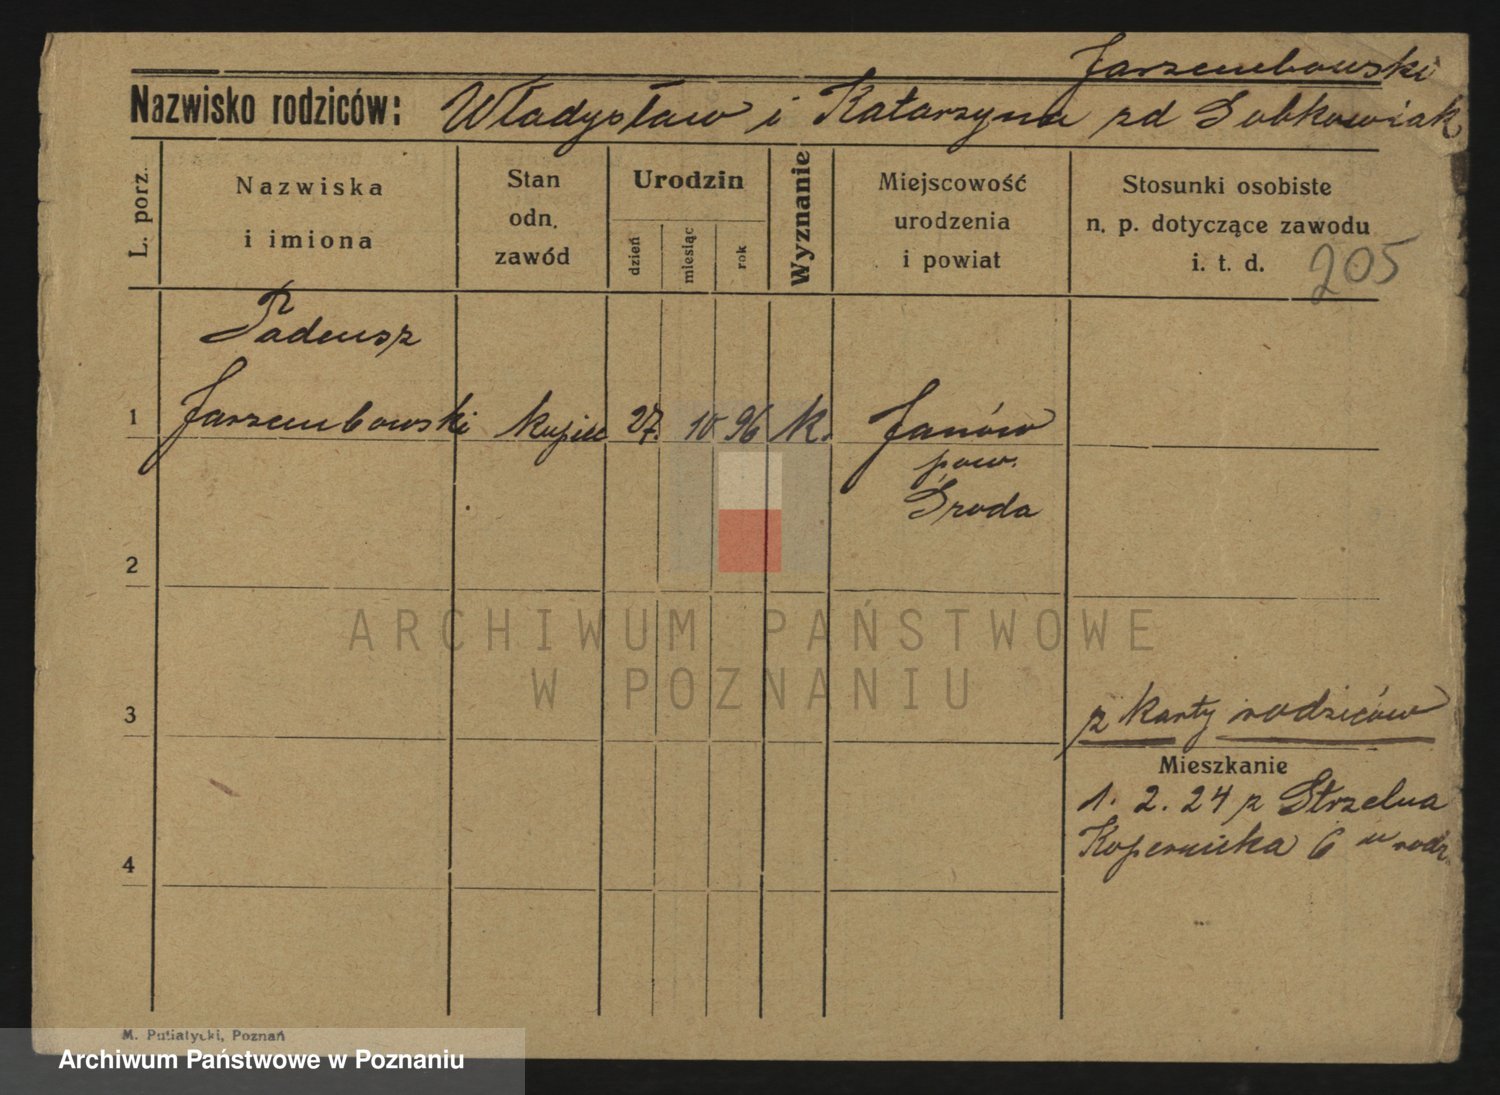 Jarzembowski
Nazwisko rodziców: Władysław i Katarzyna zd Sobkowiak
L. porz.
Nazwiska
i imiona
Stan
odn.
zawód
Urodzin
dzień
miesiąc
rok
Wyznanie
Miejscowość
urodzenia
i powiat
Stosunki osobiste
n. p. dotyczące zawodu
i. t. d.
205
Tadeusz
1 Jarzembowski kupiec 27. 10 96 k. Janów
pow.
Środa
2
ARCHIWUM PAŃSTWOWE
W POZNANIU
3
z karty rodziców
Mieszkanie
1. 2. 24 z Strzelna
Kopernika 6 u rodz.
4
M. Putiatycki, Poznań
Archiwum Państwowe w Poznaniu